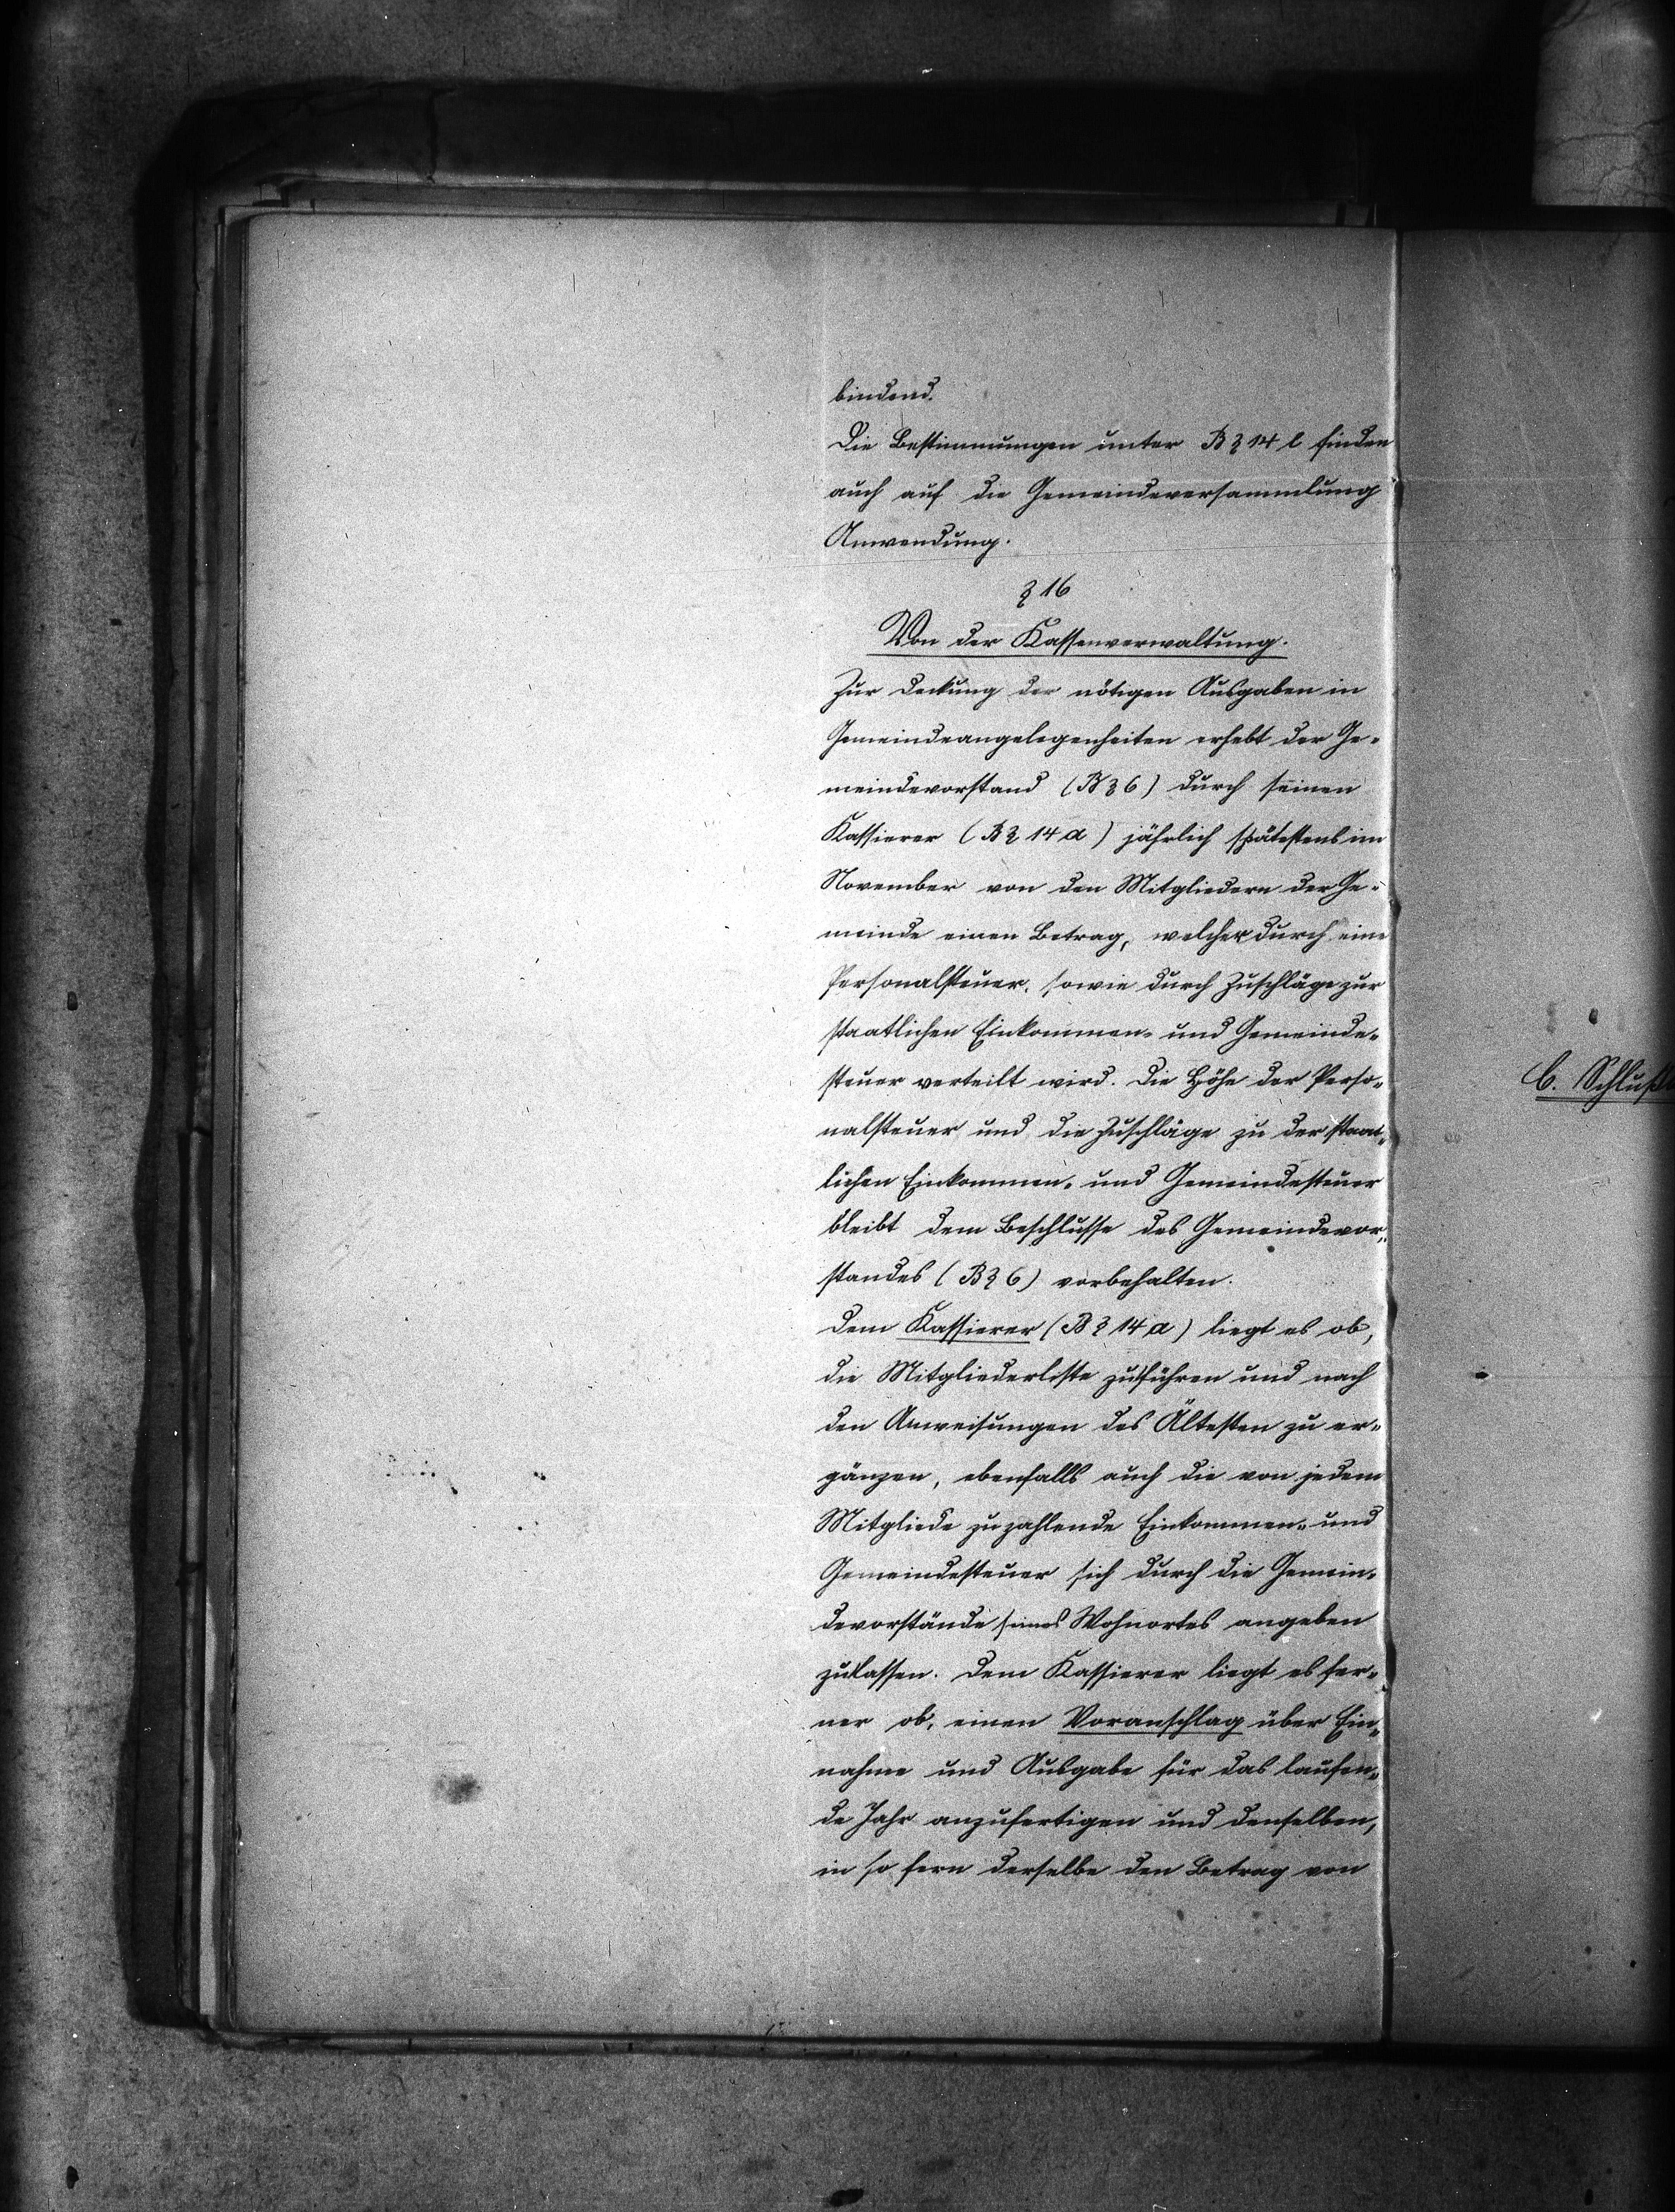 bindend.
Die Bestimmungen unter B § 14 l finden
auch auf die Gemeindeversammlung
Anwendung.
§ 16
Von der Kassenverwaltung.
Zur Deckung der nötigen Ausgaben in
Gemeindeangelegenheiten erhebt der Ge-
meindevorstand (B § 6) durch seinen
Kassierer (B § 14 a) jährlich spätestens im
November von den Mitgliedern der Ge-
meinde einen Betrag, welcher durch eine
Personalsteuer, sowie durch Zuschläge zur
staatlichen Einkommen- und Gemeinde-
steuer verteilt wird. Die Höhe der Perso-
nalsteuer und die Zuschläge zu der staat-
lichen Einkommen- und Gemeindesteuer
bleibt dem Beschlusse des Gemeindevor-
standes (B § 6) vorbehalten.
Dem Kassierer (B § 14 a) liegt es ob,
die Mitgliederliste zu führen und nach
den Anweisungen des Ältesten zu er-
gänzen, ebenfalls auch die von jedem
Mitgliede zu zahlende Einkommen- und
Gemeindesteuer sich durch die Gemein-
devorstände seines Wohnortes angeben
zu lassen. Dem Kassierer liegt es fer-
ner ob, einen Voranschlag über Ein-
nahme und Ausgabe für das laufen-
de Jahr anzufertigen und denselben,
in so fern derselbe den Betrag von
C. Schluß